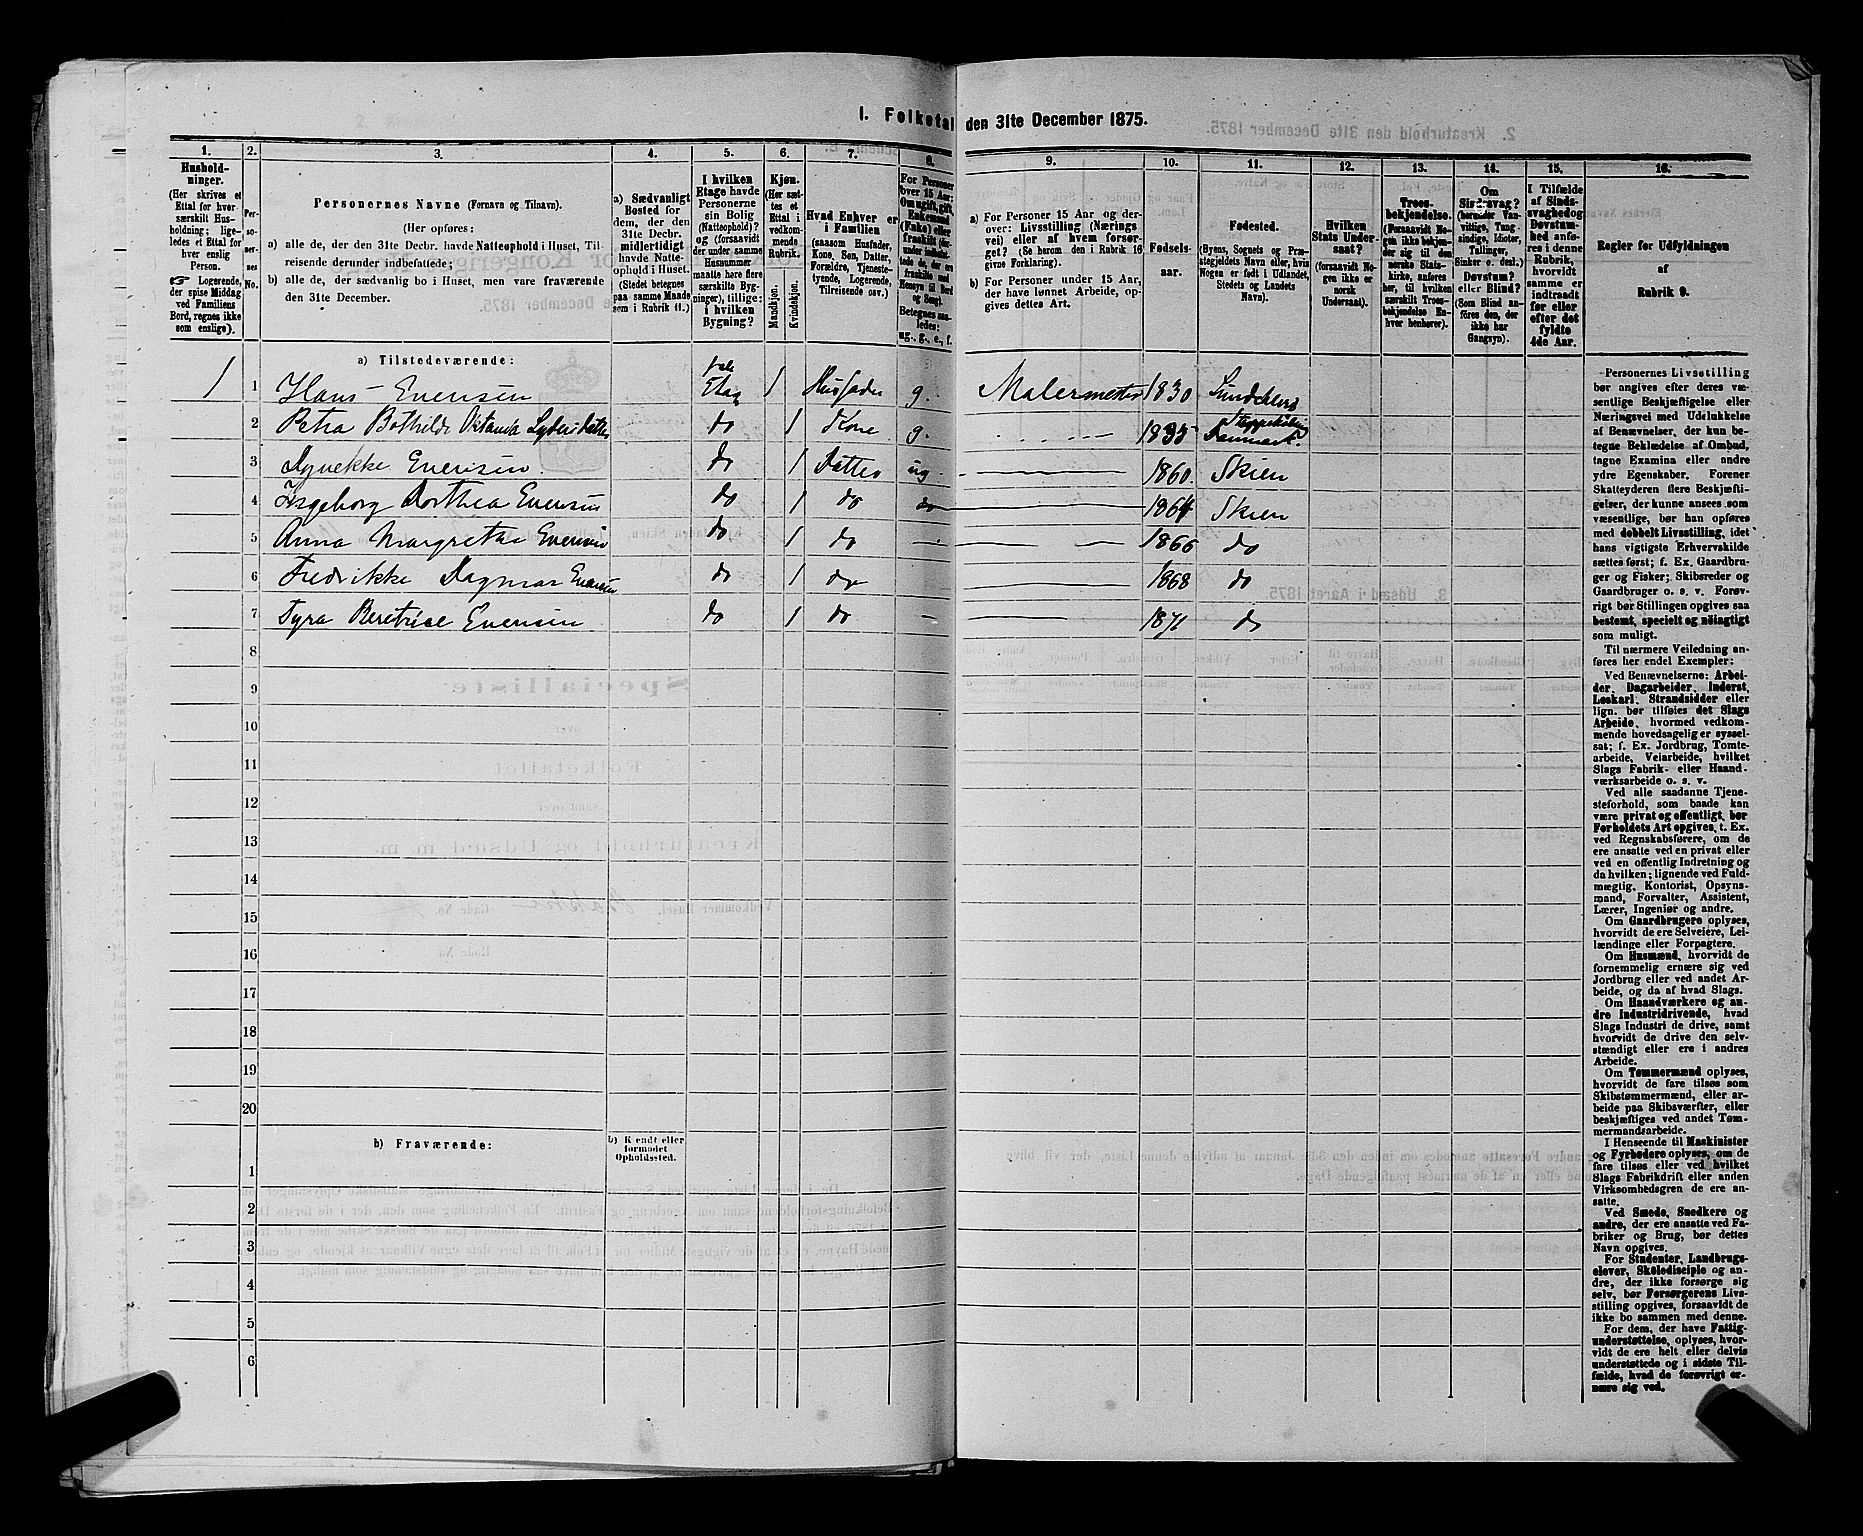 1. Folketal den 31te December 1875.
1. 2. 3. 4. 5. 6. 7. 8. 9. 10. 11. 12. 13. 14. 15. 16.
Hushold-
ninger.
(Her skrives et
Ettal for hver
særskilt Hus-
holdning; lige-
ledes et Ettal for
hver enslig
Person.
☞ Logerende,
der spise Middag
ved Familiens
Bord, regnes ikke
som enslige).
Per-
so-
ner-
nes
No.
Personernes Navne (Fornavn og Tilnavn).
(Her opføres:
a) alle de, der den 31te Decbr. havde Natteophold i Huset, Til-
reisende derunder indbefattede;
b) alle de, der sædvanlig bo i Huset, men vare fraværende
den 31te December.
a) Sædvanligt
Bosted for
dem, der den
31te Decbr.
midlertidigt
havde Natte-
ophold i Huset.
(Stedet betegnes
paa samme Maade
som i Rubrik 11.)
I hvilken
Etage havde
Personerne
sin Bolig
(Natteophold)?
og (forsaavidt
der under samme
Husnummer
maatte høre flere
særskilte Byg-
ninger), tillige:
i hvilken
Bygning?
Kjøn.
(Her sæt-
tes et
Ettal i
vedkom-
mende
Rubrik.
Mandkjøn.
Kvindekjøn.
Hvad Enhver er
i Familien
(saasom Husfader,
Kone, Søn, Datter,
Forældre, Tjeneste-
tyende, Logerende,
Tilreisende osv.)
For Personer
over 15 Aar:
Om ugift, gift,
Enkemand
(Enke) eller
fraskilt
Betegnes saa-
ledes:
ug., g., e., f.
a) For Personer 15 Aar og der-
over: Livsstilling (Nærings
vei) eller af hvem forsør-
get? (Se herom den i Rubrik 16
givne Forklaring).
b) For Personer under 15 Aar,
der have lønnet Arbeide, op-
gives dettes Art.
Fødsels-
aar.
Fødested.
(Byens, Sognets og Præ-
stegjeldets Navn eller, hvis
Nogen er født i Udlandet,
Stedets og Landets
Navn).
Hvilken
Stats Under-
saat?
(forsaavidt No-
gen ikke er
norsk
Undersaat).
Troes-
bekjendelse.
(Forsaavidt No-
gen ikke bekjen-
der sig til den
norske Stats-
kirke, anføres
her, til hvilken
særskilt Troes-
bekjendelse En-
hver henhører).
Om
Sindssvag?
(herunder Van-
vittige, Tung-
sindige, Idioter,
Tullinger,
Sinker o. desl.)
Døvstum?
eller Blind?
(Som Blind an-
føres den, der
ikke har
Gangsyn).
I Tilfælde
af Sinds-
svaghed og
Døvstum-
hed anfø-
res i denne
Rubrik,
hvorvidt
samme er
indtraadt
før eller
efter det
fyldte
4de Aar.
Regler for Udfyldningen
af
Rubrik 9.
a) Tilstedeværende:
1 1 Hans Evensen Etag 1 Husfader g. Malermester 1830
2 Petra Bothilde do 1 Kone g. Danmark.
3 Evensen do 1 Datter ug 1860. Skien
4 Ingeborg Dorthea Evensen do 1 do do 1864 Skien
5 Anna Margrethe Evensen do 1 do 1866 do
6 Fredrikke Dagmar Evensen do 1 do 1868 do
7 Tyra Evensen do 1 do 1871 do
8
9
10
11
12
13
14
15
16
17
18
19
20
b) Fraværende:
b) Kjendt eller
formodet
Opholdssted.
1
2
3
4
5
6
Personernes Livsstilling
bør angives efter deres væ-
sentlige Beskjæftigelse eller
Næringsvei med Udelukkelse
af Benævnelser, der kun be-
tegne Beklædelse af Ombud,
tagne Examina eller andre
ydre Egenskaber. Forener
Skatteyderen flere Beskjæfti-
gelser, der kunne ansees som
væsentlige, bør han opføres
med dobbelt Livsstilling, idet
hans vigtigste Erhvervskilde
sættes først; f. Ex. Gaardbru-
ger og Fisker; Skibsreder og
Gaardbruger o. s. v. Forøv-
rigt bør Stillingen opgives saa
bestemt, specielt og nöiagtigt
som muligt.
Til nærmere Veiledning an-
føres her endel Exempler:
Ved Benævnelserne: Arbei-
der, Dagarbeider, Inderst,
Løskarl, Strandsidder eller
lign. bør tilføies det Slags
Arbeide, hvormed vedkom-
mende hovedsagelig er syssel-
sat; f. Ex. Jordbrug, Tomte-
arbeide, Veiarbeide, hvilket
Slags Fabrik- eller Haand-
værksarbeide o. s. v.
Ved alle saadanne Tjene-
steforhold, som baade kan
være privat og offentligt, bør
Forholdets Art opgives, t. Ex.
ved Regnskabsførere, om de
ere ansatte ved en privat eller
ved en offentlig Indretning og
da hvilken; lignende ved Fuld-
mægtig, Kontorist, Opsyns-
mand, Forvalter, Assistent,
Lærer, Ingeniør og andre.
Om Gaardbrugere oplyses,
hvorvidt de ere Selveiere, Lei-
lændinge eller Forpagtere.
Om Husmænd, hvorvidt de
fornemmelig ernære sig ved
Jordbrug eller ved andet Ar-
beide, og da af hvad Slags.
Om Haandværkere og an-
dre Industridrivende, hvad
Slags Industri de drive, samt
hvorvidt de drive den selv-
stændigt eller ere i andres
Arbeide.
Om Tømmermænd oplyses,
hvorvidt de fare tilsøs som
Skibstømmermænd, eller ar-
beide paa Skibsværfter, eller
beskjæftiges ved andet Tøm-
mermandsarbeide.
I Henseende til Maskinister
og Fyrbødere oplyses, om de
fare tilsøs eller ved hvilket
Slags Fabrikdrift eller anden
Virksomhedsgren de ere an-
satte.
Ved Smede, Snedkere og
andre, der ere ansatte ved Fa-
briker og Brug, bør dettes
Navn opgives.
For Studenter, Landbrugs-
elever, Skoledisciple og an-
dre, der ikke forsørge sig
selv, bør Forsørgerens Livs-
stilling opgives, forsaavidt de
ikke bo sammen med denne.
For dem, der have Fattig-
understøttelse, oplyses, hvor-
vidt de ere helt eller delvis
understøttede og i sidste Til-
fælde, hvad de forøvrigt er-
nære sig ved.